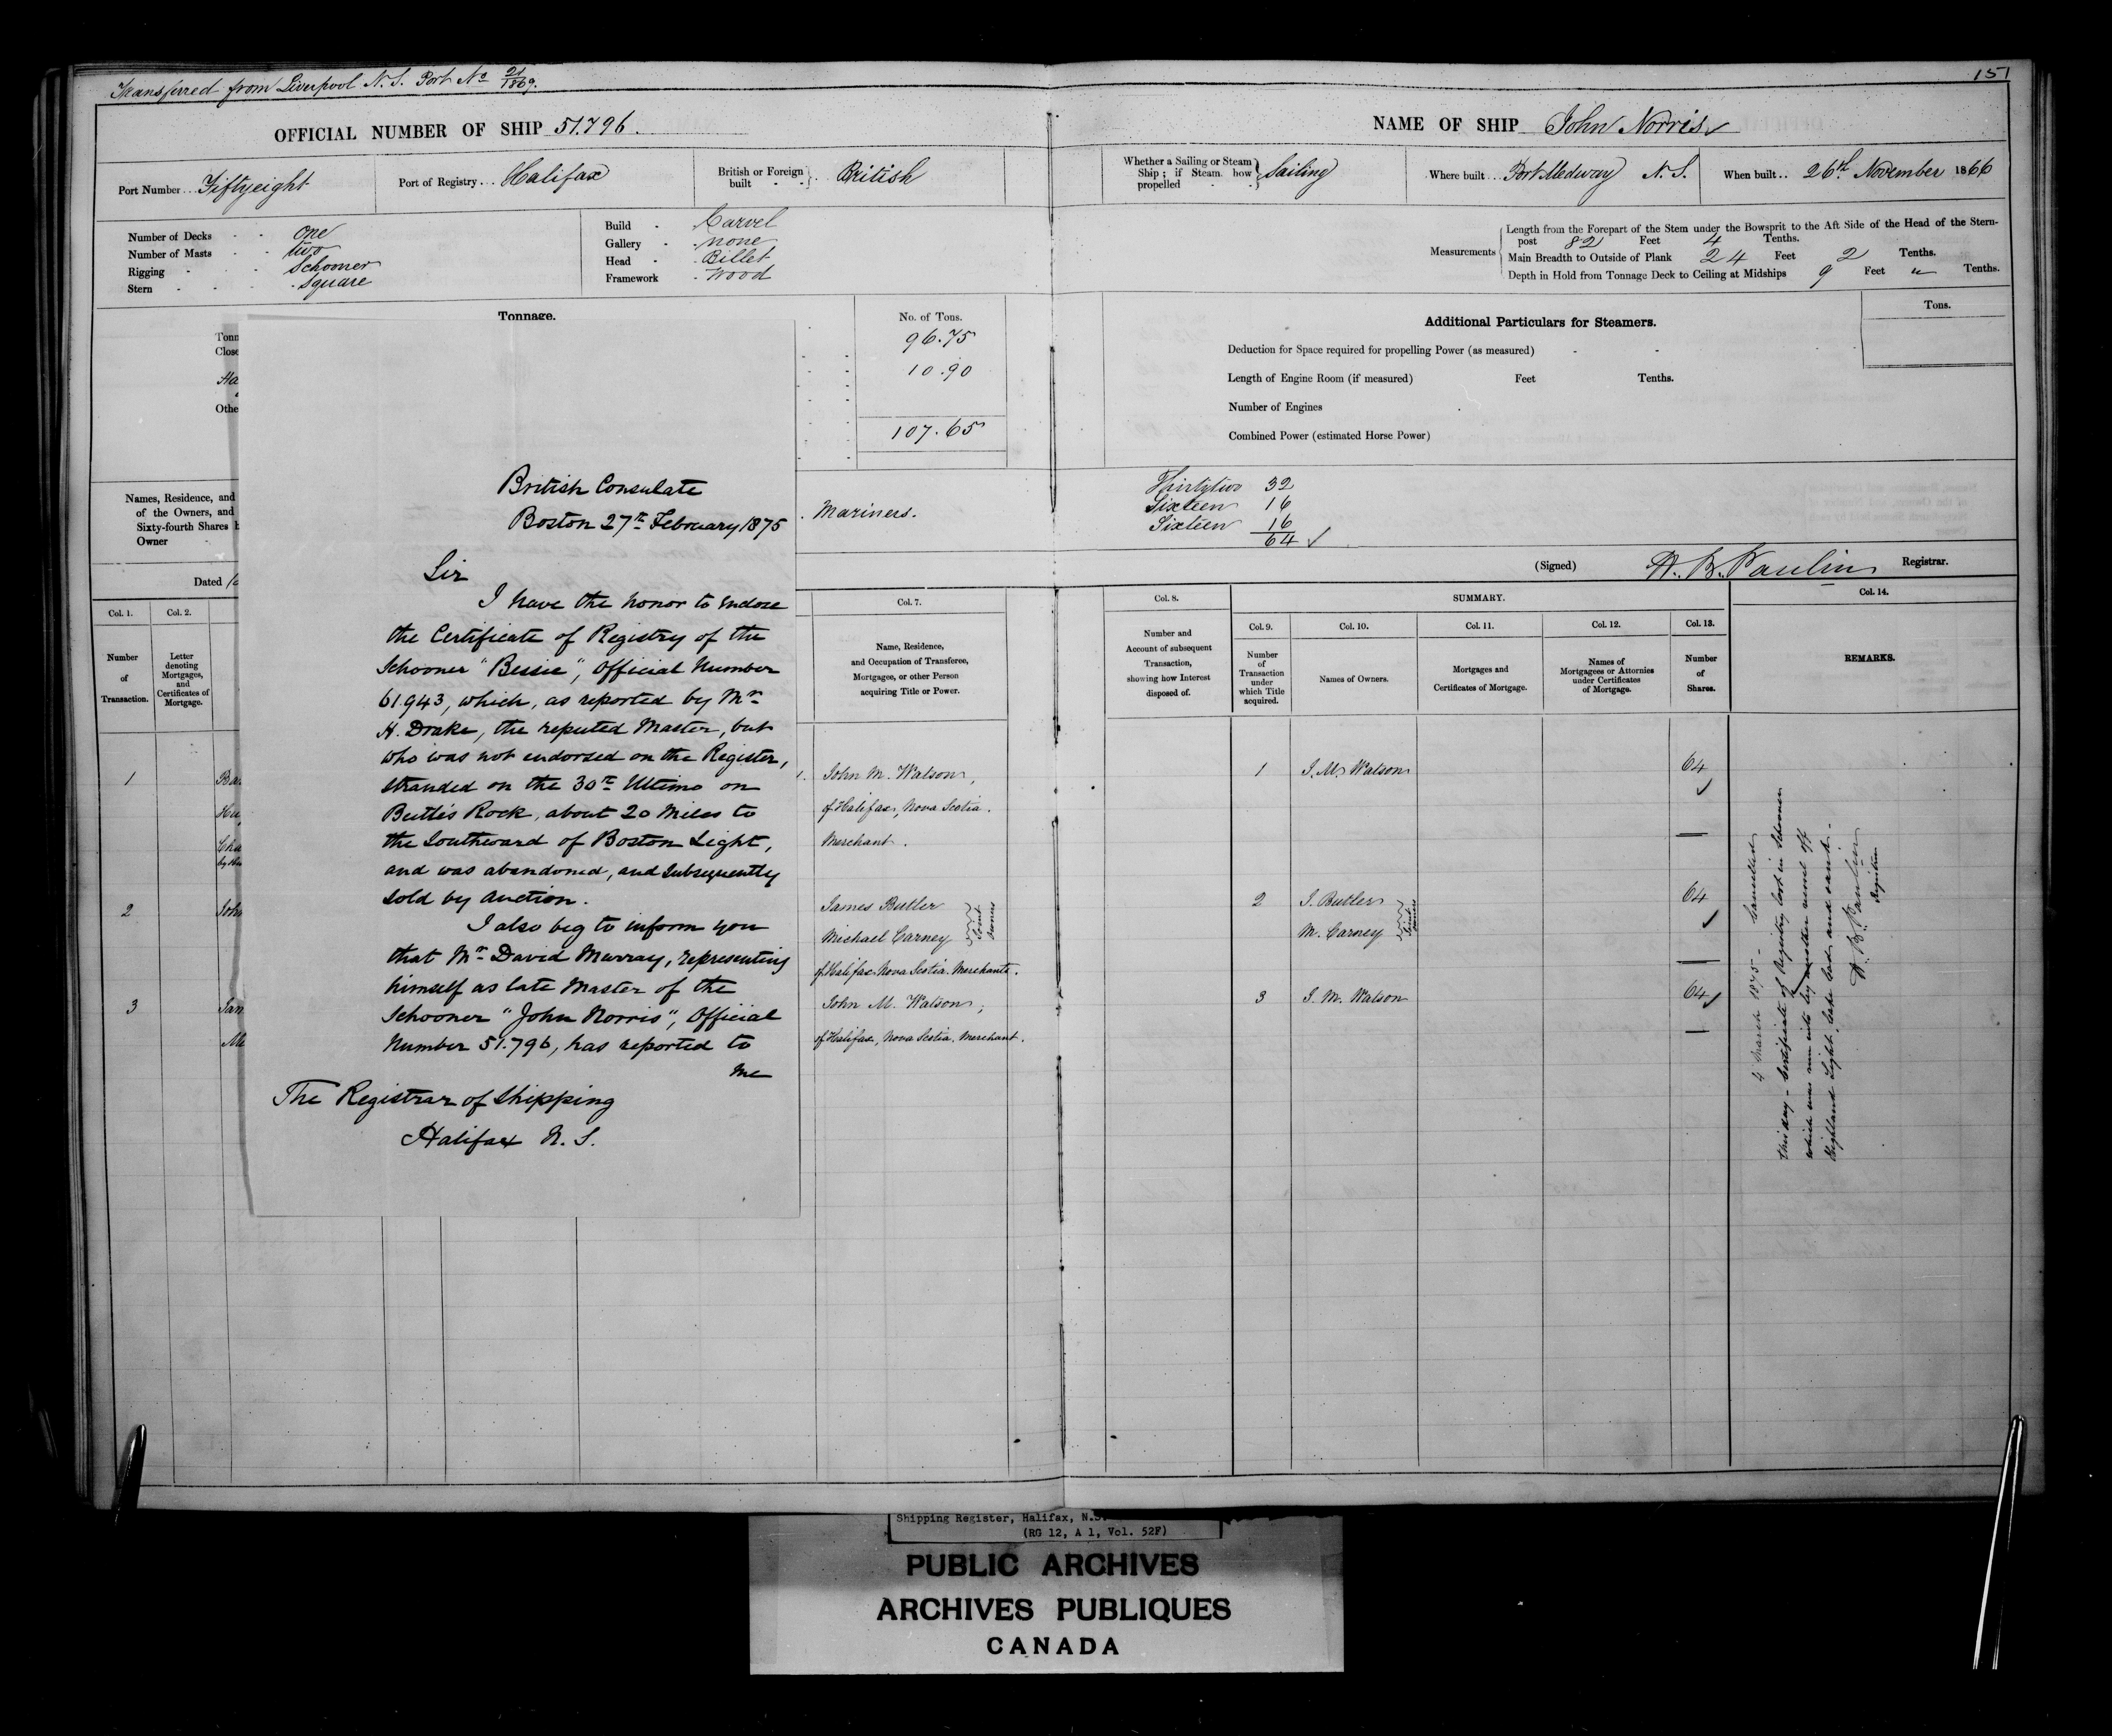 Transferred from Liverpool N.S. Port No 21/1869.
151
OFFICIAL NUMBER OF SHIP 51.796.
NAME OF SHIP John Norris
Port Number... Fiftyeight
Port of Registry... Halifax
British or Foreign built } .. British
Whether a Sailing or Steam Ship; if Steam how propelled } Sailing
Where built... Port Medway N.S.
When built.. 26th November 1866
Number of Decks - - One
Number of Masts - - two
Rigging - - Schooner
Stern - - - Square
Build - Carvel
Gallery - none
Head - Billet
Framework - Wood
Measurements
Length from the Forepart of the Stem under the Bowsprit to the Aft Side of the Head of the Stern-
post 82 Feet 4 Tenths.
Main Breadth to Outside of Plank 24 Feet 2 Tenths.
Depth in Hold from Tonnage Deck to Ceiling at Midships 9 Feet " Tenths.
Tonnage.
No. of Tons.
Tonn
Close
Ha
Othe
96.75
10.90
107.65
Additional Particulars for Steamers.
Tons.
Deduction for Space required for propelling Power (as measured) - -
Length of Engine Room (if measured) Feet Tenths.
Number of Engines
Combined Power (estimated Horse Power)
Names, Residence, and
of the Owners, and
Sixty-fourth Shares h
Owner -
Mariners.
Thirtytwo 32
Sixteen 16
Sixteen 16
64
Dated
(Signed) H. B. Paulin Registrar.
British Consulate
Boston 27th February 1875
Sir
I have the honor to enclose
the Certificate of Registry of the
Schooner "Bessie", Official Number
61.943, which, as reported by Mr
H. Drake, the reputed Master, but
who was not endorsed on the Register,
stranded on the 30th Ultimo on
Rock, about 20 Miles to
the Southward of Boston Light,
and was abandoned, and subsequently
sold by auction.
I also beg to inform you
that Mr David Murray, representing
himself as late Master of the
Schooner "John Norris", Official
Number 51.796, has reported to
me
The Registrar of Shipping
Halifax N. S.
Col. 1.
Number
of
Transaction.
Col. 2.
Letter
denoting
Mortgages,
and
Certificates of
Mortgage.
Col. 7.
Name, Residence,
and Occupation of Transferee,
Mortgagee, or other Person
acquiring Title or Power.
Col. 8.
Number and
Account of subsequent
Transaction,
showing how Interest
disposed of.
SUMMARY.
Col. 9.
Number
of
Transaction
under
which Title
acquired.
Col. 10.
Names of Owners.
Col. 11.
Mortgages and
Certificates of Mortgage.
Col. 12.
Names of
Mortgagees or Attornies
under Certificates
of Mortgage.
Col. 13.
Number
of
Shares.
Col. 14.
REMARKS.
1
John M. Watson,
of Halifax, Nova Scotia.
Merchant.
1 J. M. Watson 64
2 John
James Butler
Michael Carney
Joint owners
of Halifax Nova Scotia. Merchants.
2 J. Butler 64
M. Carney
Joint owners
3 Jam
John M. Watson,
of Halifax, Nova Scotia. Merchant.
3 J. M. Watson 64
4 March 1875 - Cancelled
this day - Certificate of Registry lost in Schooner
which was run into by another vessel off
Highland Light, Cape Cod and sank -
H. B. Paulin
Registrar
Shipping Register, Halifax, N.S.
(RG 12, A 1, Vol. 52F)
PUBLIC ARCHIVES
ARCHIVES PUBLIQUES
CANADA